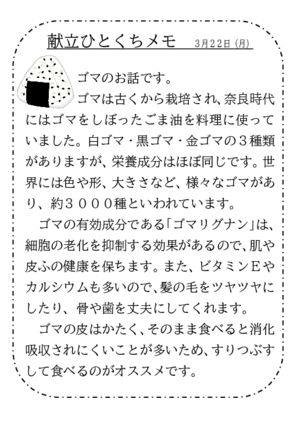 献立ひとくちメモ 3月22日(月)
ゴマのお話です。
ゴマは古くから栽培され、奈良時代
にはゴマをしぼったごま油を料理に使って
いました。白ゴマ・黒ゴマ・金ゴマの3種類
がありますが、栄養成分はほぼ同じです。世
界には色や形、大きさなど、様々なゴマがあ
り、約3000種といわれています。
ゴマの有効成分である「ゴマリグナン」は、
細胞の老化を抑制する効果があるので、肌や
皮ふの健康を保ちます。また、ビタミンEや
カルシウムも多いので、髪の毛をツヤツヤに
したり、骨や歯を丈夫にしてくれます。
ゴマの皮はかたく、そのまま食べると消化
吸収されにくいことが多いため、すりつぶす
して食べるのがオススメです。